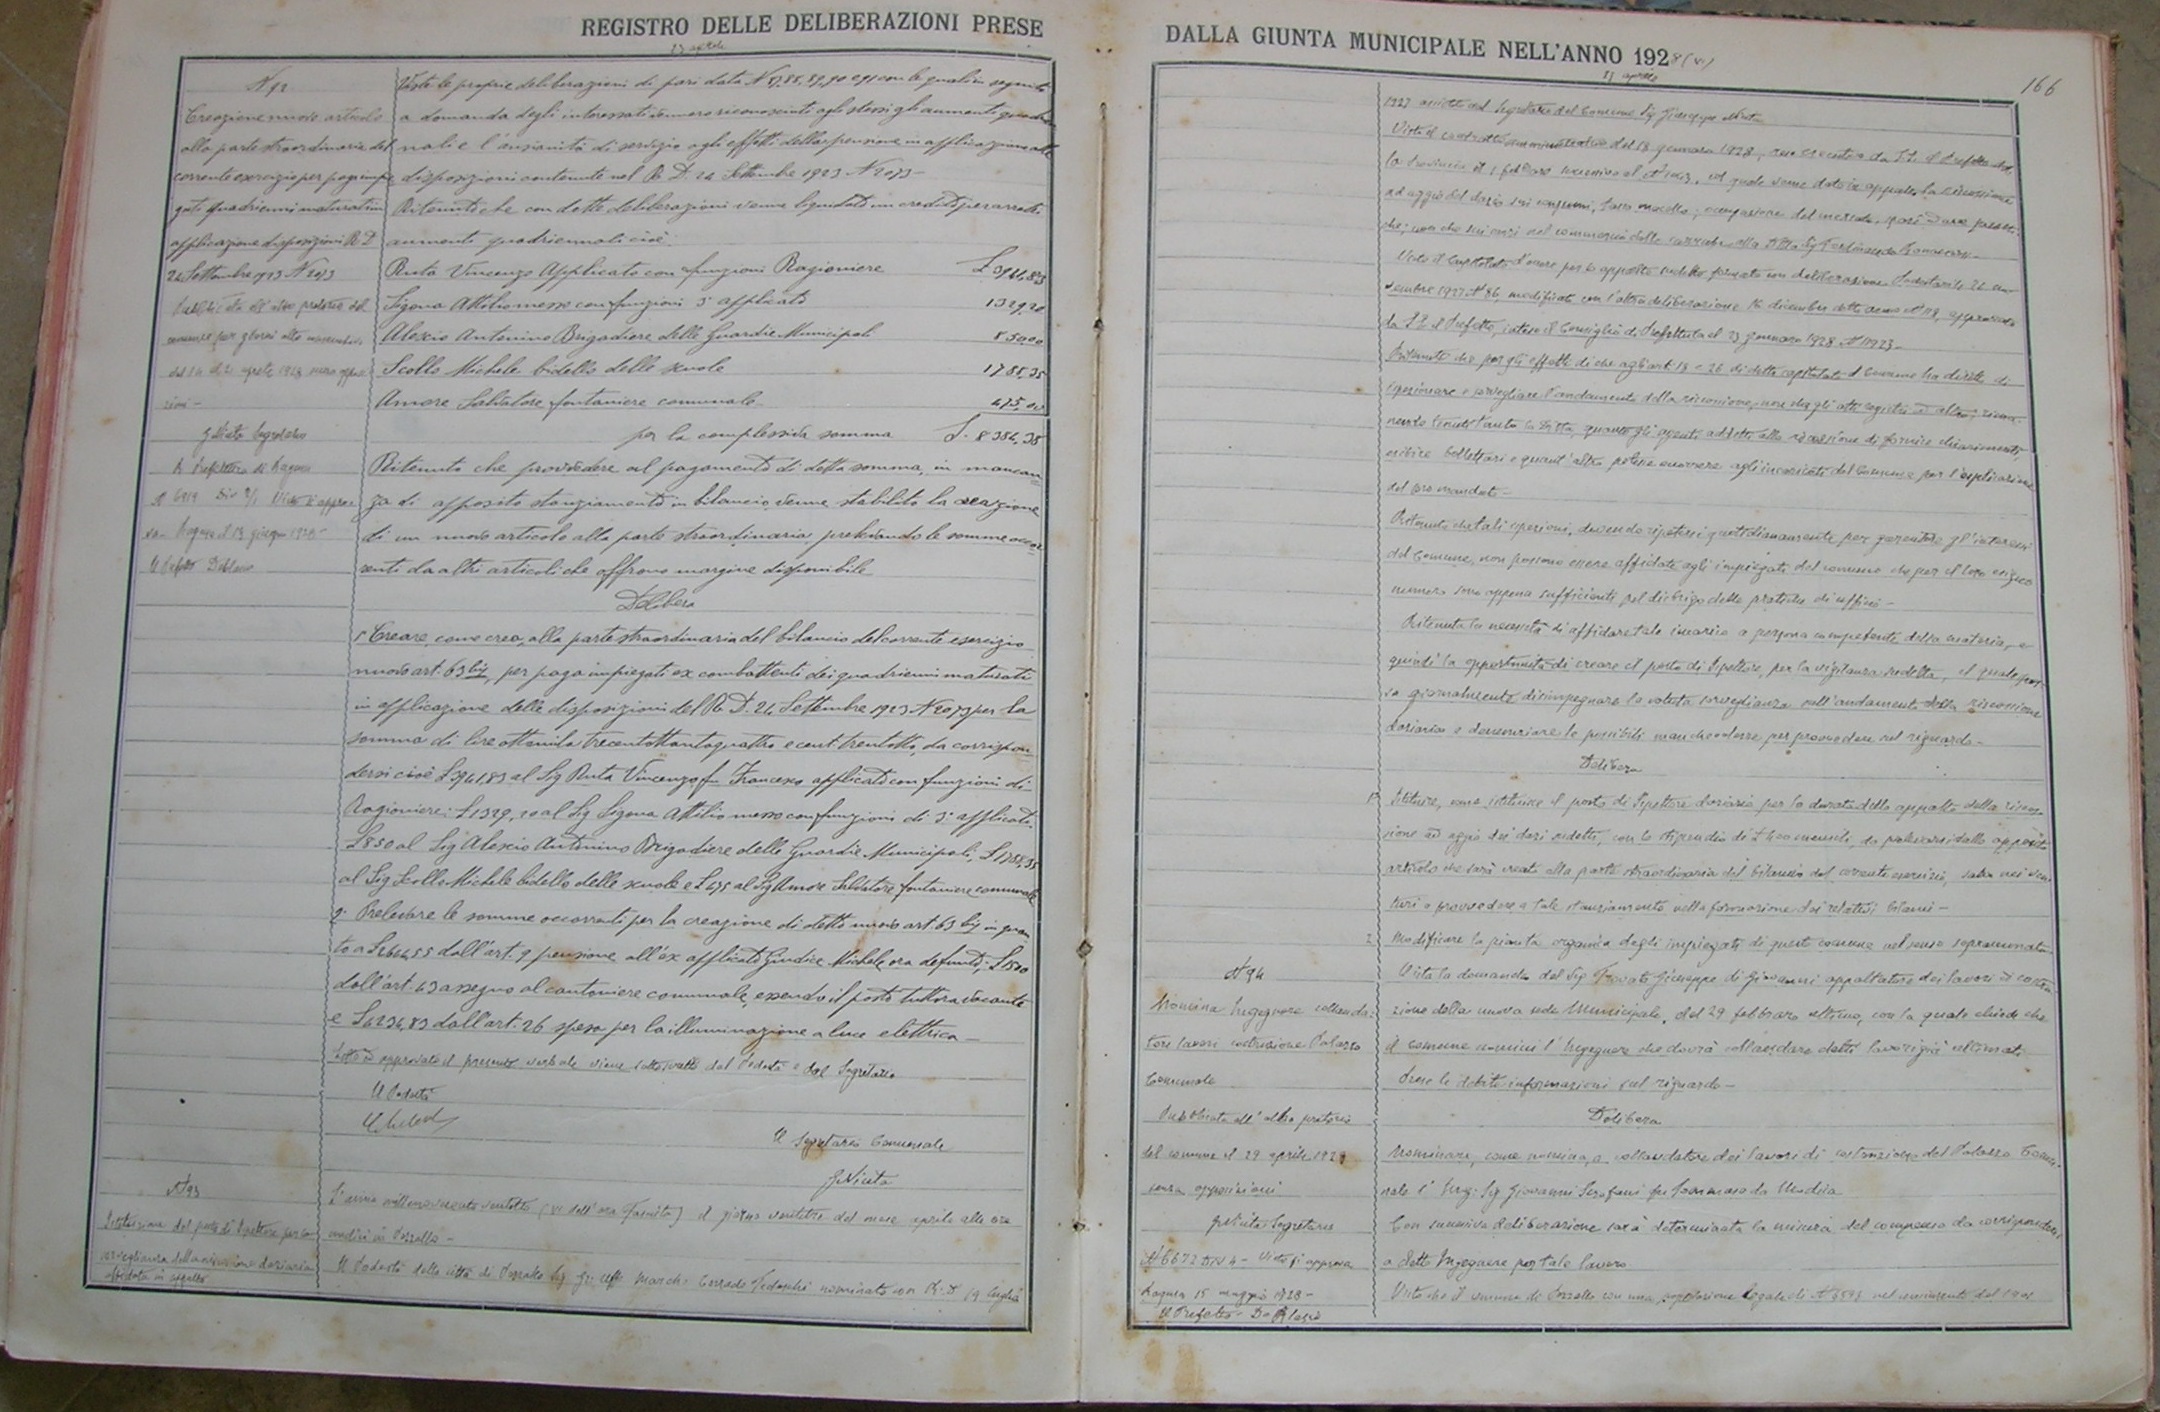 REGISTRO DELLE DELIBERAZIONI PRESE
23 aprile
N 92
Creazione nuovo articolo
alla parte straordinaria del
corrente esercizio per paga impie
gati quadrienni maturati in
applicazione disposizioni R D
24 Settembre 1923 N 2073
Pubblicata all'albo pretorio del
comune per giorni otto
dal 14 al 21 aprile 1928 senza opposi
zioni -
G Nicita Segretario
R Prefettura di Ragusa
N 6919 Div 2/1 Visto si appro
va - Ragusa il 13 giugno 1928 -
Il Prefetto
Viste le proprie deliberazioni di pari data N 87, 88, 89, 90 e 91 con le quali in seguito
a domanda degli interessati vennero riconosciuti agli stessi gli aumenti quadrien
nali e l'anzianità di servizio agli effetti della pensione in applicazione alle
disposizioni contenute nel R D. 24 Settembre 1923 N 2073 -
Ritenuto che con dette deliberazioni venne liquidato un credito per arretrati
aumenti quadriennali cioè:
Ruta Vincenzo Applicato con funzioni Ragioniere L 3941,83
Sigona Attilio messo con funzioni 3° applicato 1329,20
Alescio Antonino Brigadiere delle Guardie Municipali 850,00
Scollo Michele bidello delle scuole 1788,35
Amore Salvatore fontaniere comunale 475,00
per la complessiva somma L. 8384,38
Ritenuto che provvedere al pagamento di detta somma, in mancan
za di apposito stanziamento in bilancio, venne stabilito la creazione
di un nuovo articolo alla parte straordinaria, prelevando le somme occor
renti da altri articoli che offrono margine disponibile
Delibera
1° Creare, come crea, alla parte straordinaria del bilancio del corrente esercizio
nuovo art. 63 bis, per paga impiegati ex combattenti dei quadrienni maturati
in applicazione delle disposizioni del R D. 24 Settembre 1923 N 2073 per la
somma di lire ottomila trecentottantaquattro e cent. trentotto, da corrispon
dersi cioè L 3941,83 al Sig Ruta Vincenzo fu Francesco applicato con funzioni di
Ragioniere; L 1329,20 al Sig Sigona Attilio messo con funzioni di 3° applicato,
L 850 al Sig Alescio Antonino Brigadiere delle Guardie Municipali, L 1788,35
al Sig Scollo Michele bidello delle scuole e L 475 al Sig Amore Salvatore fontaniere comunale
2° Prelevare le somme occorrenti per la creazione di detto nuovo art. 63 bis in quan
to a L 2644,55 dall'art. 9 pensione all'ex applicato Giudice Michele ora defunto; L 1500
dall'art. 43 assegno al cantoniere comunale, essendo il posto tuttora vacante
e L 4234,83 dall'art. 26 spesa per la illuminazione a luce elettrica -
Letto ed approvato il presente verbale viene sottoscritto dal Podestà e dal Segretario
Il Podestà
Il Segretario Comunale
G Nicita
N 93
Istituzione del posto di Ispettore per la
sorveglianza della riscossione daziaria
affidata in appalto
L'anno millenovecento ventotto (VI dell'era Fascista) il giorno ventitre del mese aprile alle ore
undici in Pozzallo -
Il Podestà della città di Pozzallo Sig. Gr. Uff. March. Corrado Tedeschi nominato con R. D 19 luglio
DALLA GIUNTA MUNICIPALE NELL'ANNO 1928 (VI)
23 aprile
166
1927 assistito dal Segretario del Comune Sig Giuseppe Nicita
Visto il contratto amministrativo del 13 gennaro 1928, reso esecutivo da S. E. il Prefetto del
la Provincia il 1 febbraro successivo al N 1023, col quale venne dato in appalto la riscossione
ad aggio del dazio sui consumi, tassa macello, occupazione del mercato, posi ed aree pubbli
che, non che sui cani del commercio delle carrube alla Ditta Sig Ferdinando
Visto il Capitolato d'onere per lo appalto suddetto formato con deliberazione Podestarile 26 no
vembre 1927 N 86, modificato con l'altra deliberazione 16 dicembre detto anno N 118, approvato
da S. E. il Prefetto, inteso il Consiglio di Prefettura il 23 gennaro 1928 N 11923 -
Ritenuto che per gli effetti di che agli art. 18 e 26 di detto capitolato il Comune ha diritto di
ispezionare e sorvegliare l'andamento della riscossione, non che gli atti, registri ed altro, rima
nendo tenuti tanto la Ditta, quanto gli agenti addetti alla riscossione di fornire chiarimenti,
esibire bollettari e quant'altro potesse occorrere agli incaricati del Comune per l'esplicazione
del loro mandato -
Ritenuto che tali ispezioni, dovendo ripetersi quotidianamente per garentire gl'interessi
del Comune, non possono essere affidate agli impiegati del comune che per il loro esiguo
numero sono appena sufficienti pel disbrigo delle pratiche di ufficio -
Ritenuta la necessità di affidare tale incarico a persona competente della materia, e
quindi la opportunità di creare il posto di Ispettore, per la vigilanza suddetta, il quale pos
sa giornalmente disimpegnare la voluta sorveglianza sull'andamento della riscossione
daziaria e denunziare le possibili manchevolezze per provvedere nel riguardo -
Delibera
1° Istituire, come istituisce il posto di Ispettore daziario, per la durata dello appalto della riscos
sione ad aggio dei dazi suddetti, con lo stipendio di L 400 mensili, da prelevarsi dallo apposito
articolo che sarà creato alla parte straordinaria del bilancio del corrente esercizio, salvo nei ven
turi a provvedere a tale stanziamento nella formazione dei relativi bilanci -
2 Modificare la pianta organica degli impiegati di questo comune nel senso sopramenzionato
N 94
Nomina Ingegnere collauda
tore lavori costruzione Palazzo
Comunale
Pubblicata all'albo pretorio
del comune il 29 aprile 1928
senza opposizioni
G Nicita Segretario
N 6672 Div 4 - Visto si approva
Ragusa 15 maggio 1928 -
Il Prefetto -
Vista la domanda del Sig Trovato Giuseppe di Giovanni appaltatore dei lavori di costru
zione della nuova sede Municipale, del 29 febbraro ultimo, con la quale chiede che
il comune nomini l'Ingegnere che dovrà collaudare detti lavori già ultimati
Prese le debite informazioni sul riguardo -
Delibera
Nominare, come nomina, a collaudatore dei lavori di costruzione del Palazzo Comu
nale l'Ing. Sig Giovanni Serafini fu Tommaso da Modica
Con successiva deliberazione sarà determinata la misura del compenso da corrispondersi
a detto Ingegnere per tale lavoro
Visto che il comune di Pozzallo con una popolazione legale di N nel censimento del